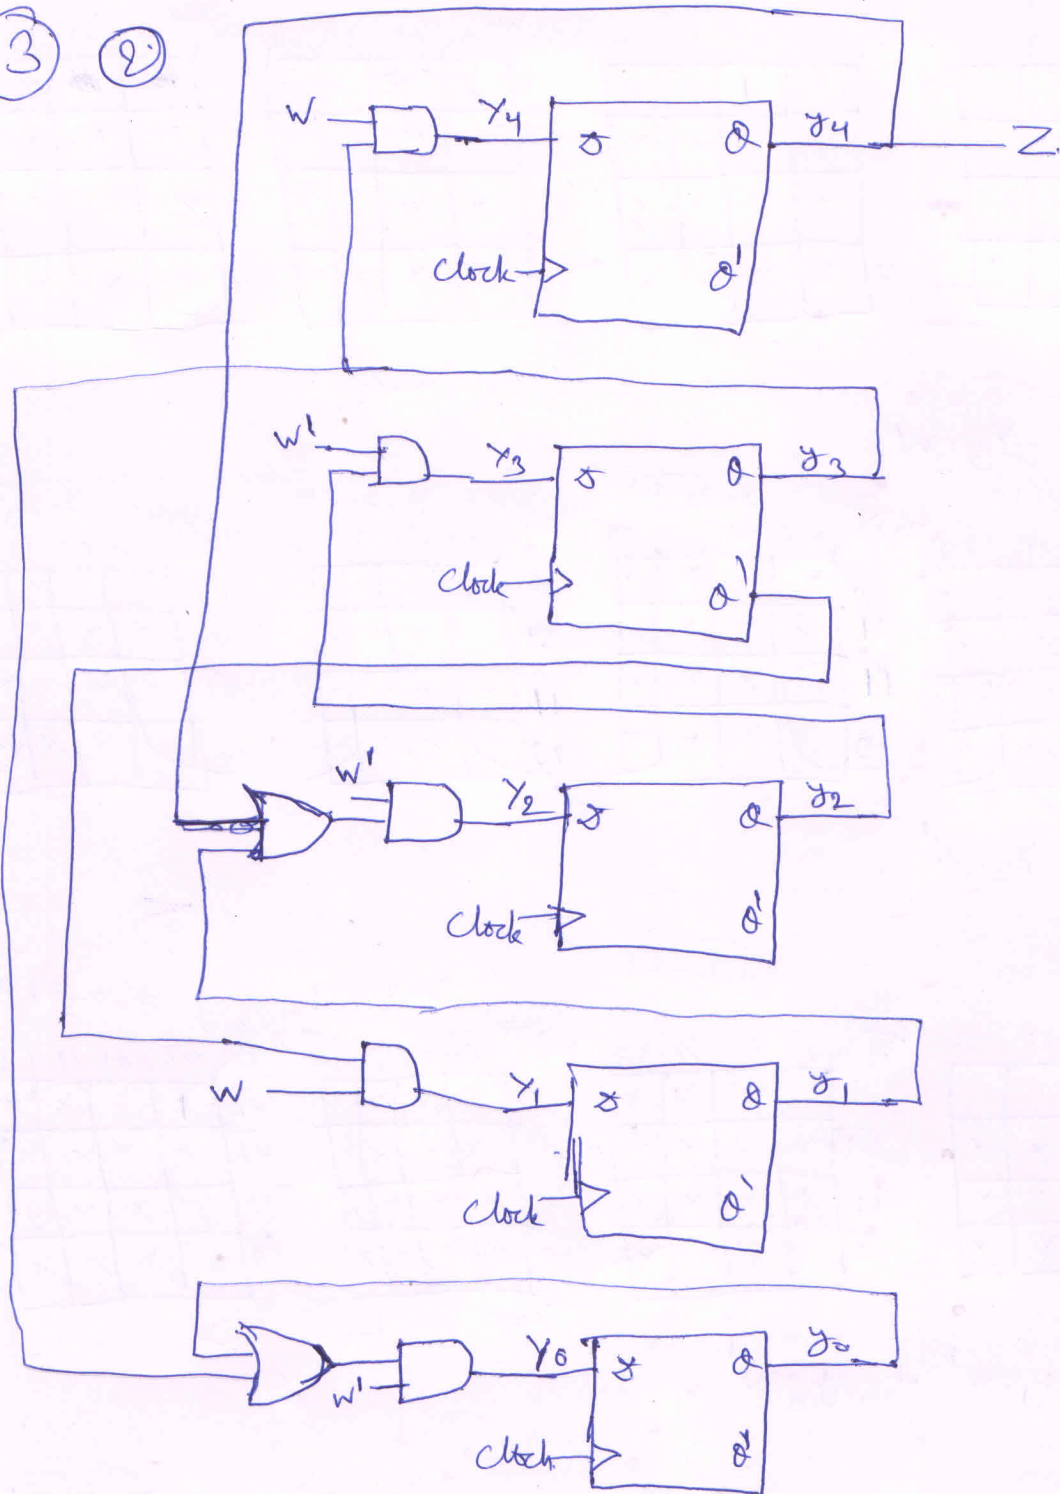 3 2
W Y4 D Q y4 Z
Clock Q'
W' Y3 D Q y3
Clock Q'
W' Y2 D Q y2
Clock Q'
W Y1 D Q y1
Clock Q'
W' Y0 D Q y0
Clock Q'